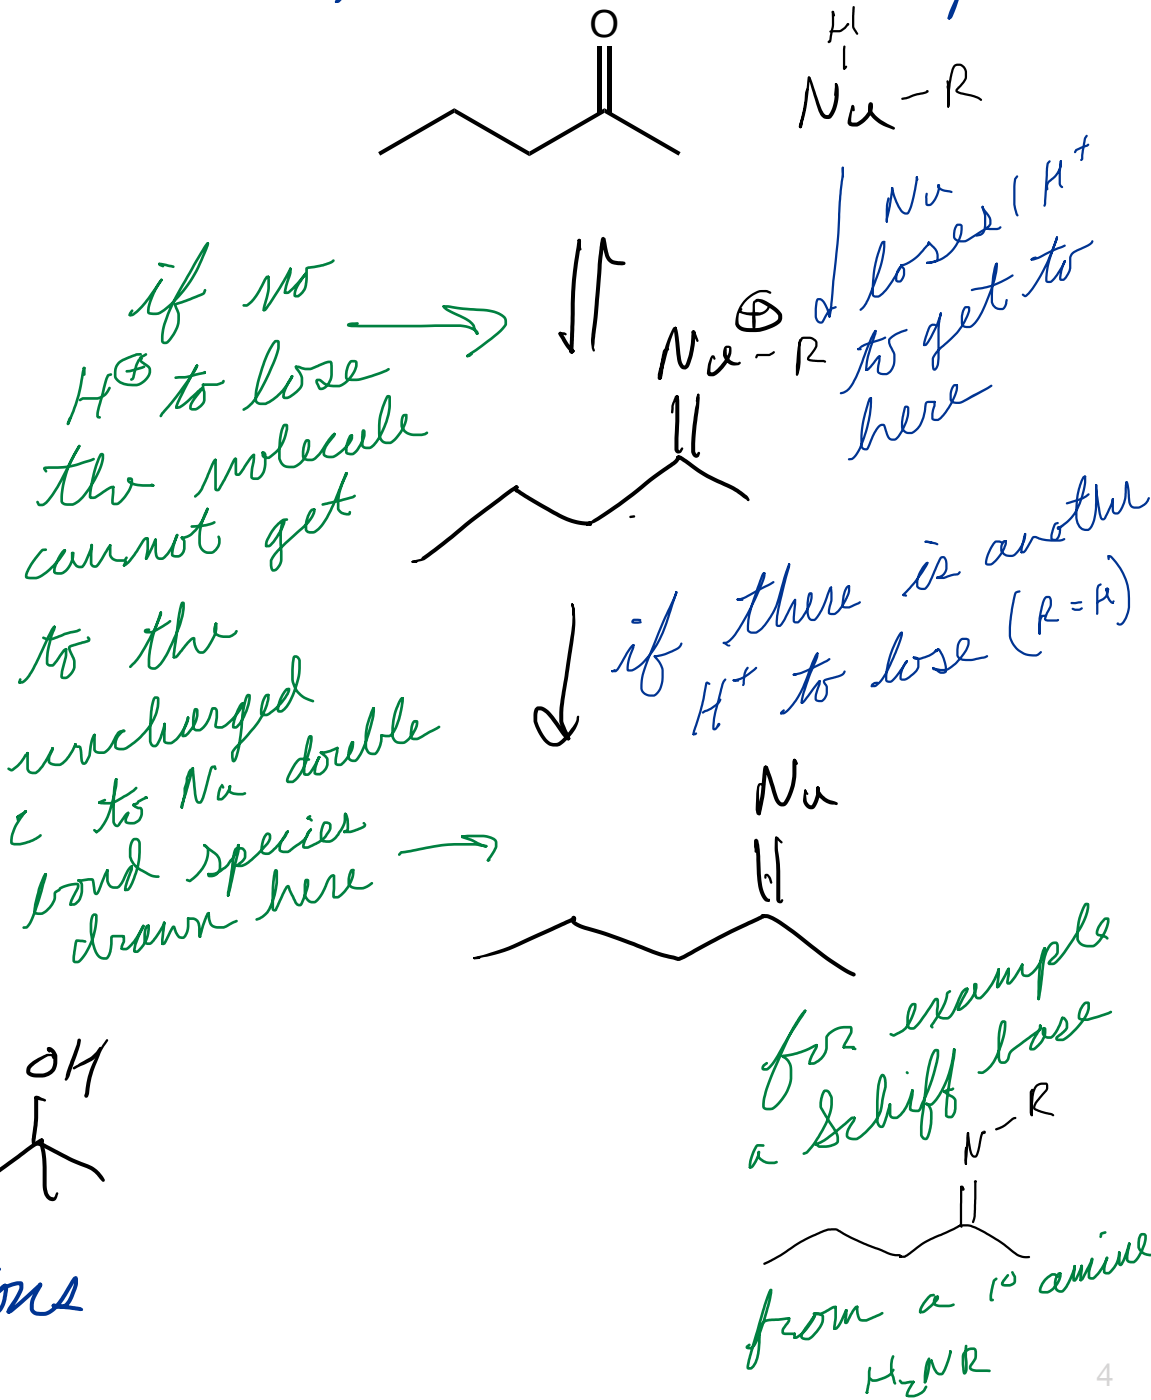 O
H
Nu-R
Nu
loses 1 H+
to get to
here
⊕
Nu-R
if no
H⊕ to lose
the molecule
cannot get
to the
uncharged
C to Nu double
bond species
drawn here
if there is another
H+ to lose (R=H)
Nu
for example
a Schiff base
N-R
from a 1° amine
H2NR
OH
ons
4